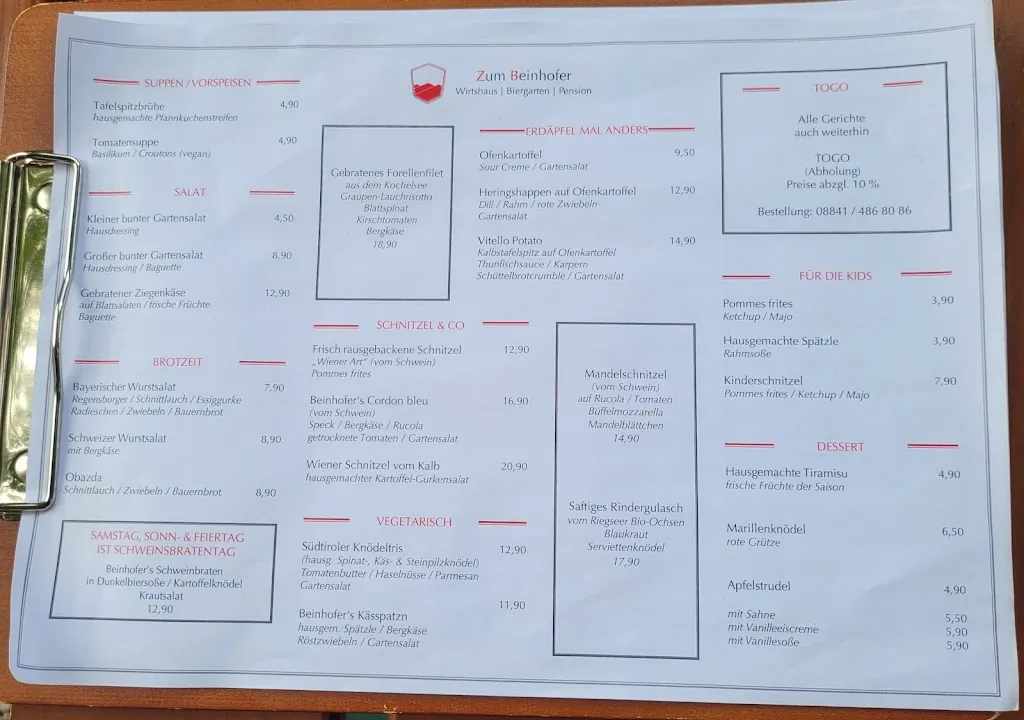 Zum Beinhofer
Wirtshaus | Biergarten | Pension
SUPPEN / VORSPEISEN
Tafelspitzbrühe 4,90
hausgemachte Pfannkuchenstreifen
Tomatensuppe 4,90
Basilikum / Croutons (vegan)
SALAT
Kleiner bunter Gartensalat 4,50
Hausdressing
Großer bunter Gartensalat 8,90
Hausdressing / Baguette
Gebratener Ziegenkäse 12,90
auf Blattsalaten / frische Früchte
Baguette
BROTZEIT
Bayerischer Wurstsalat 7,90
Regensburger / Schnittlauch / Essiggurke
Radieschen / Zwiebeln / Bauernbrot
Schweizer Wurstsalat 8,90
mit Bergkäse
Obazda
Schnittlauch / Zwiebeln / Bauernbrot 8,90
SAMSTAG, SONN- & FEIERTAG
IST SCHWEINSBRATENTAG
Beinhofer's Schweinbraten
in Dunkelbiersoße / Kartoffelknödel
Krautsalat
12,90
Gebratenes Forellenfilet
aus dem Kochelsee
Graupen-Lauchrisotto
Blattspinat
Kirschtomaten
Bergkäse
18,90
SCHNITZEL & CO
Frisch rausgebackene Schnitzel 12,90
„Wiener Art" (vom Schwein)
Pommes frites
Beinhofer's Cordon bleu 16,90
(vom Schwein)
Speck / Bergkäse / Rucola
getrocknete Tomaten / Gartensalat
Wiener Schnitzel vom Kalb 20,90
hausgemachter Kartoffel-Gurkensalat
VEGETARISCH
Südtiroler Knödeltris 12,90
(hausg. Spinat-, Käs- & Steinpilzknödel)
Tomatenbutter / Haselnüsse / Parmesan
Gartensalat
Beinhofer's Kässpatzn 11,90
hausgem. Spätzle / Bergkäse
Röstzwiebeln / Gartensalat
ERDÄPFEL MAL ANDERS
Ofenkartoffel 9,50
Sour Creme / Gartensalat
Heringshappen auf Ofenkartoffel 12,90
Dill / Rahm / rote Zwiebeln
Gartensalat
Vitello Potato 14,90
Kalbstafelspitz auf Ofenkartoffel
Thunfischsauce / Karpern
Schüttelbrotcrumble / Gartensalat
Mandelschnitzel
(vom Schwein)
auf Rucola / Tomaten
Büffelmozzarella
Mandelblättchen
14,90
Saftiges Rindergulasch
vom Riegseer Bio-Ochsen
Blaukraut
Serviettenknödel
17,90
TOGO
Alle Gerichte
auch weiterhin
TOGO
(Abholung)
Preise abzgl. 10 %
Bestellung: 08841 / 486 80 86
FÜR DIE KIDS
Pommes frites 3,90
Ketchup / Majo
Hausgemachte Spätzle 3,90
Rahmsoße
Kinderschnitzel 7,90
Pommes frites / Ketchup / Majo
DESSERT
Hausgemachte Tiramisu 4,90
frische Früchte der Saison
Marillenknödel 6,50
rote Grütze
Apfelstrudel 4,90
mit Sahne 5,50
mit Vanilleeiscreme 5,90
mit Vanillesoße 5,90